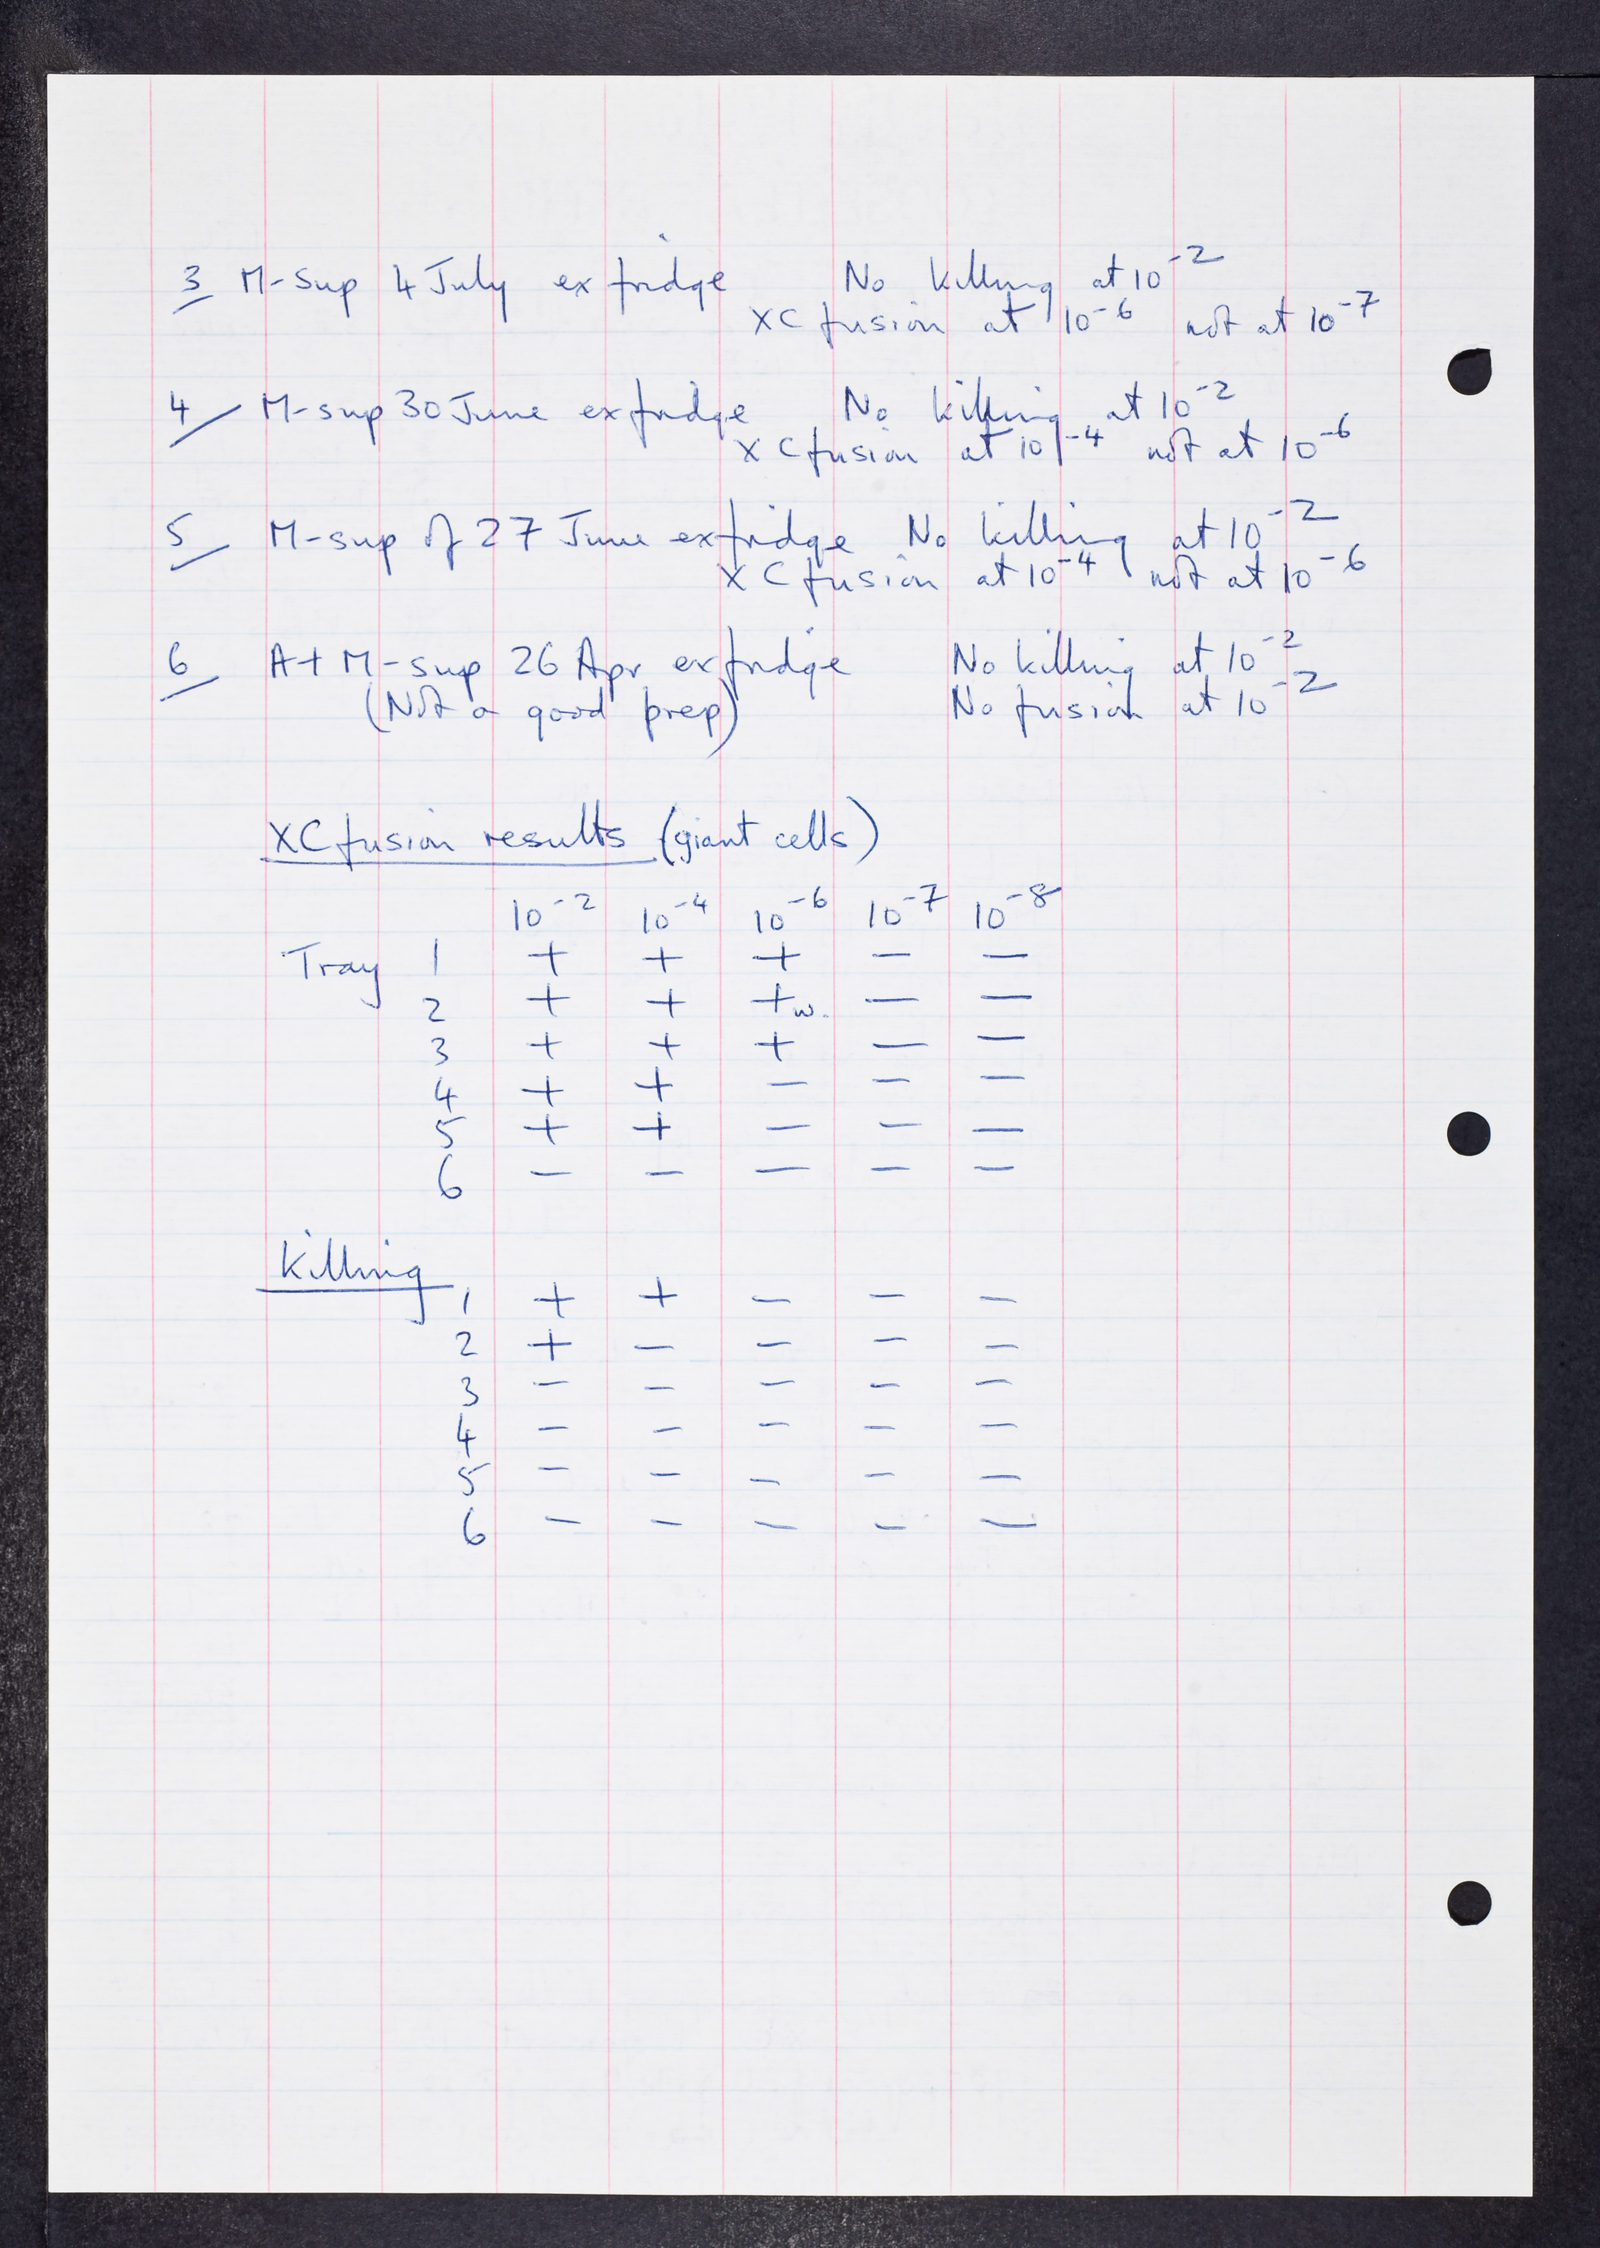 3 M-Sup 4 July ex fridge No killing at 10⁻²
XC fusion at 10⁻⁶ not at 10⁻⁷
4 M-sup 30 June ex fridge No killing at 10⁻²
XC fusion at 10⁻⁴ not at 10⁻⁶
5 M-sup of 27 June ex fridge No killing at 10⁻²
XC fusion at 10⁻⁴ not at 10⁻⁶
6 A+M-sup 26 Apr ex fridge No killing at 10⁻²
(Not a good prep) No fusion at 10⁻²
XC fusion results (giant cells)
10⁻² 10⁻⁴ 10⁻⁶ 10⁻⁷ 10⁻⁸
Tray 1 + + + - -
2 + + +w. - -
3 + + + - -
4 + + - - -
5 + + - - -
6 - - - - -
Killing
1 + + - - -
2 + - - - -
3 - - - - -
4 - - - - -
5 - - - - -
6 - - - - -